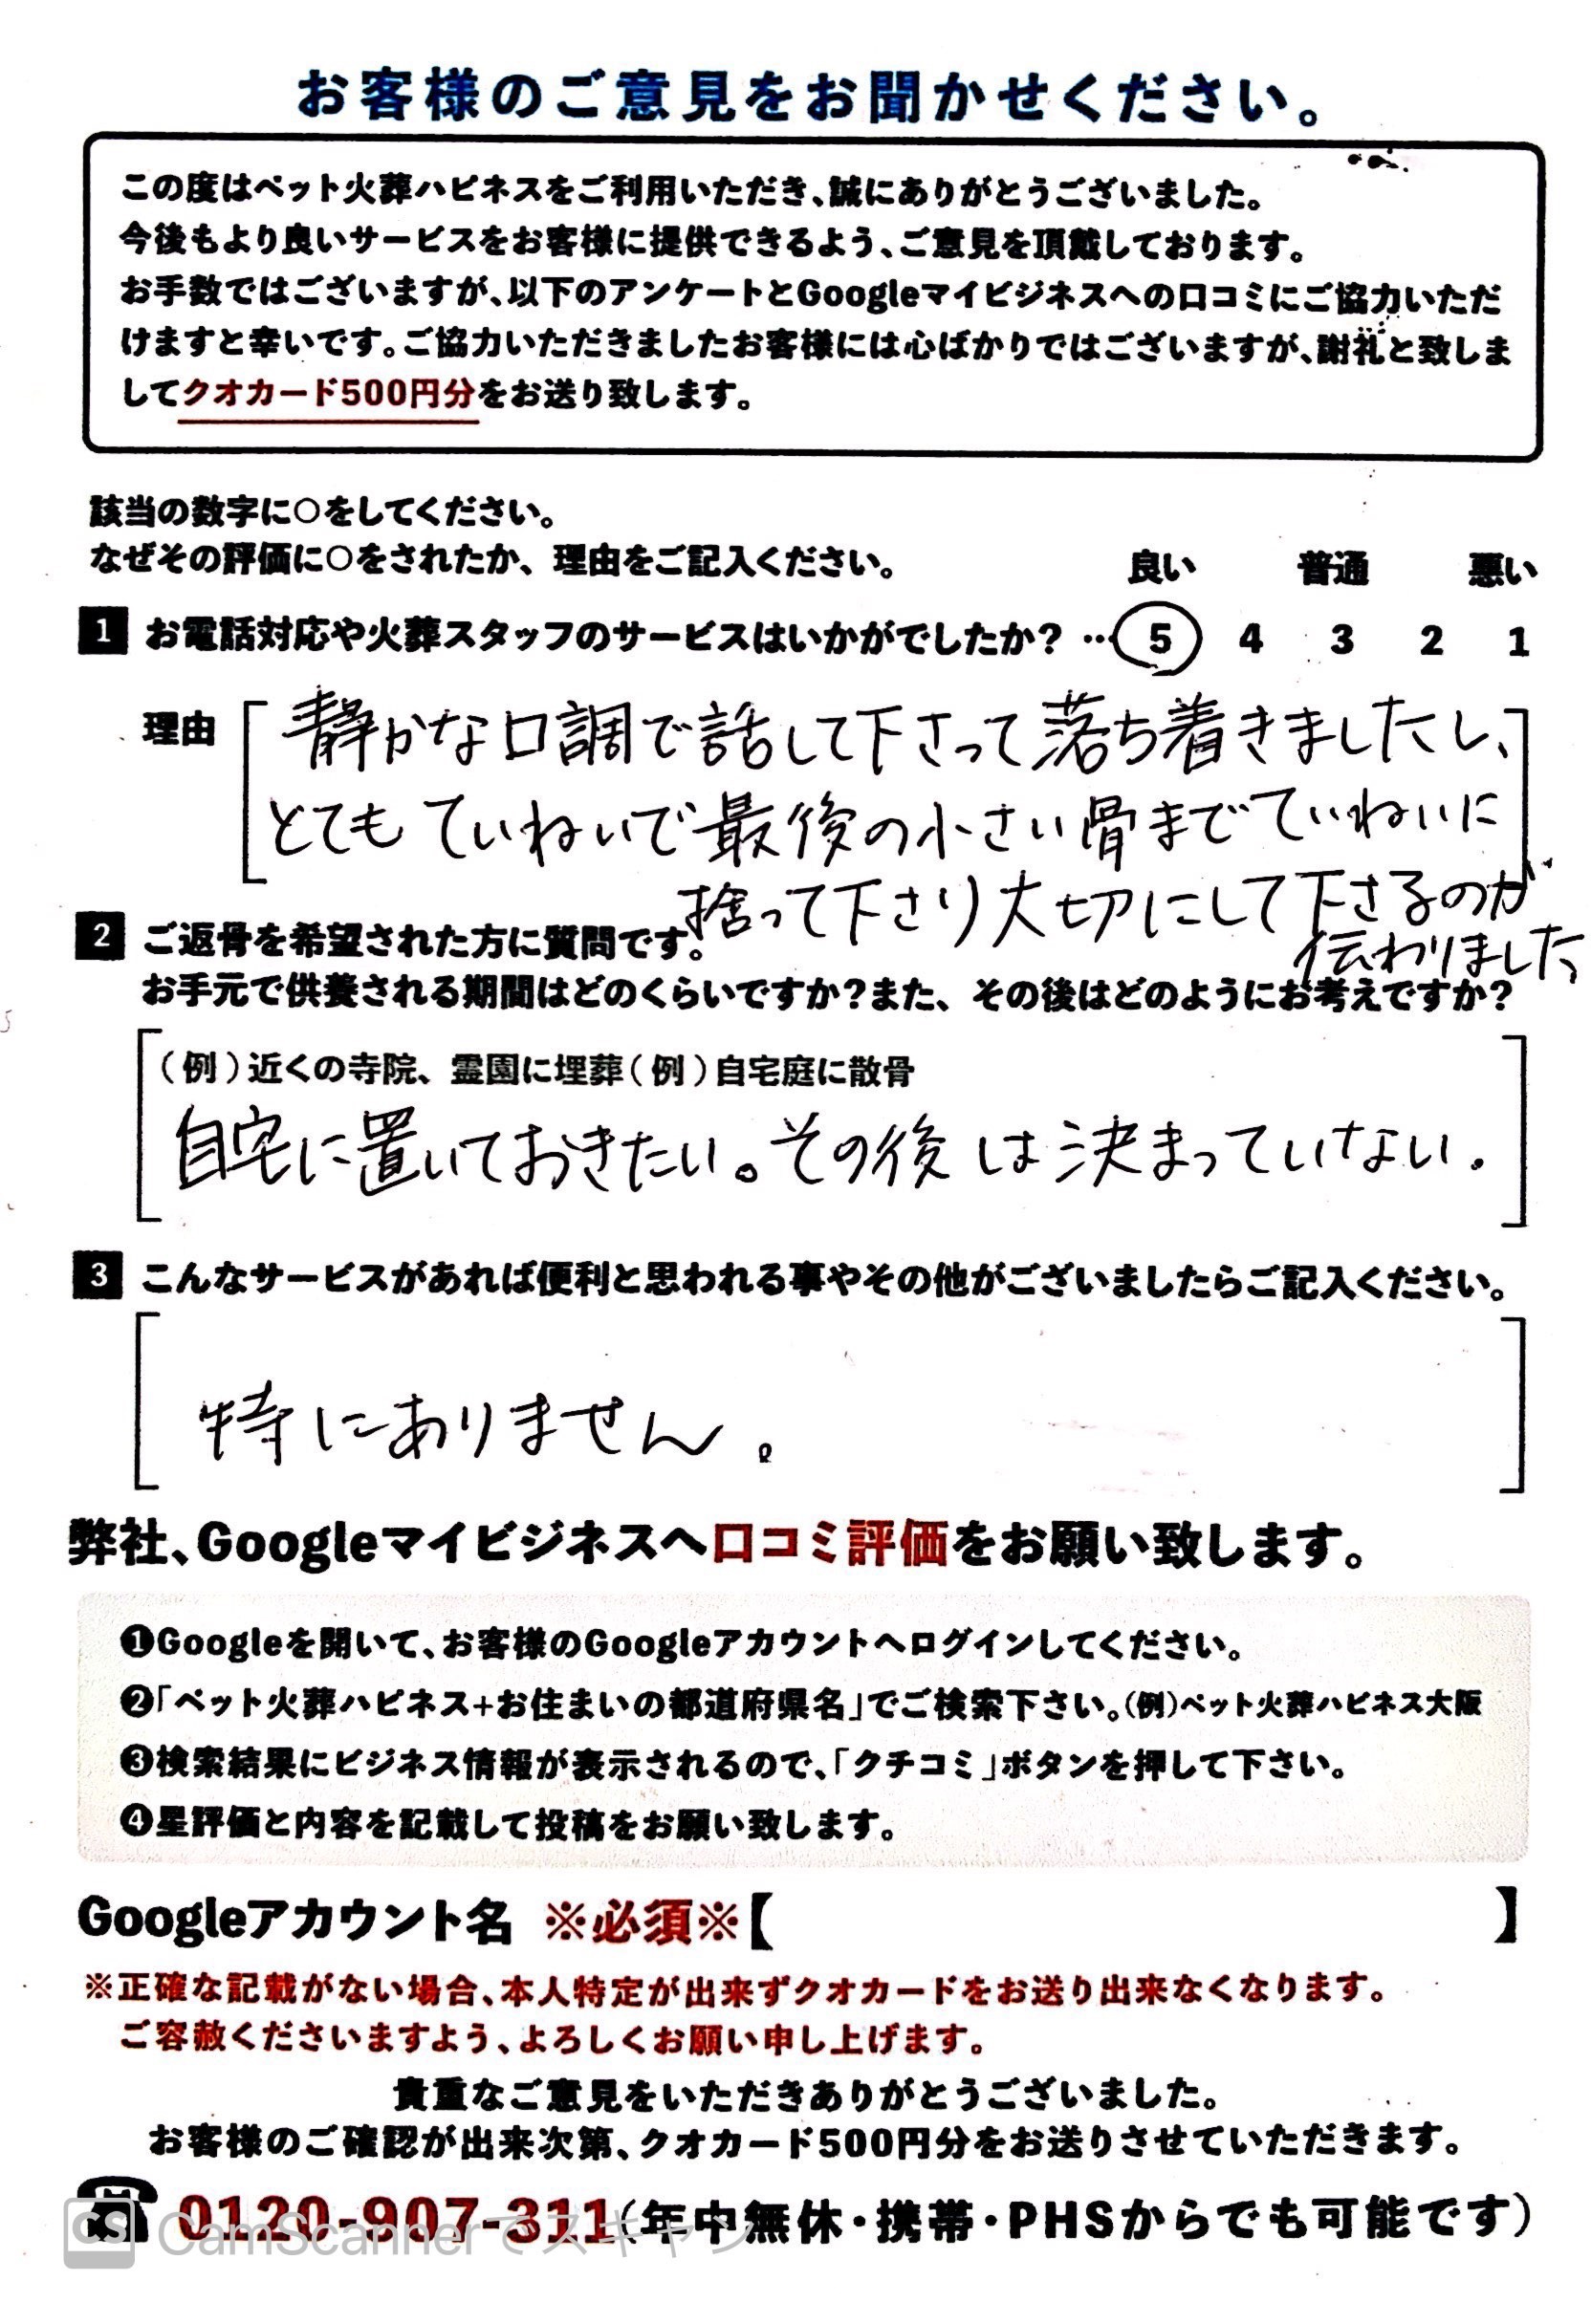 お客様のご意見をお聞かせください。
この度はペット火葬ハピネスをご利用いただき、誠にありがとうございました。
今後もより良いサービスをお客様に提供できるよう、ご意見を頂戴しております。
お手数ではございますが、以下のアンケートとGoogleマイビジネスへの口コミにご協力いただ
けますと幸いです。ご協力いただきましたお客様には心ばかりではございますが、謝礼と致しま
してクオカード500円分をお送り致します。
該当の数字に○をしてください。
なぜその評価に○をされたか、理由をご記入ください。
良い 普通 悪い
1 お電話対応や火葬スタッフのサービスはいかがでしたか? …5 4 3 2 1
理由
静かな口調で話して下さって落ち着きましたし、
とても ていねいで最後の小さい骨までていねいに
捨って下さり大切にして下さるのが
伝わりました
2 ご返骨を希望された方に質問です。
お手元で供養される期間はどのくらいですか?また、その後はどのようにお考えですか?
(例)近くの寺院、霊園に埋葬(例)自宅庭に散骨
自宅に置いておきたい。その後は決まっていない.
3 こんなサービスがあれば便利と思われる事やその他がございましたらご記入ください。
特にありません。
弊社、Googleマイビジネスへ口コミ評価をお願い致します。
❶Googleを開いて、お客様のGoogleアカウントへログインしてください。
❷「ペット火葬ハピネス+お住まいの都道府県名」でご検索下さい。(例)ペット火葬ハピネス大阪
❸検索結果にビジネス情報が表示されるので、「クチコミ」ボタンを押して下さい。
❹星評価と内容を記載して投稿をお願い致します。
Googleアカウント名 ※必須※【 】
※正確な記載がない場合、本人特定が出来ずクオカードをお送り出来なくなります。
ご容赦くださいますよう、よろしくお願い申し上げます。
貴重なご意見をいただきありがとうございました。
お客様のご確認が出来次第、クオカード500円分をお送りさせていただきます。
☎ 0120-907-311(年中無休・携帯・PHSからでも可能です)
CS CamScannerでスキャン